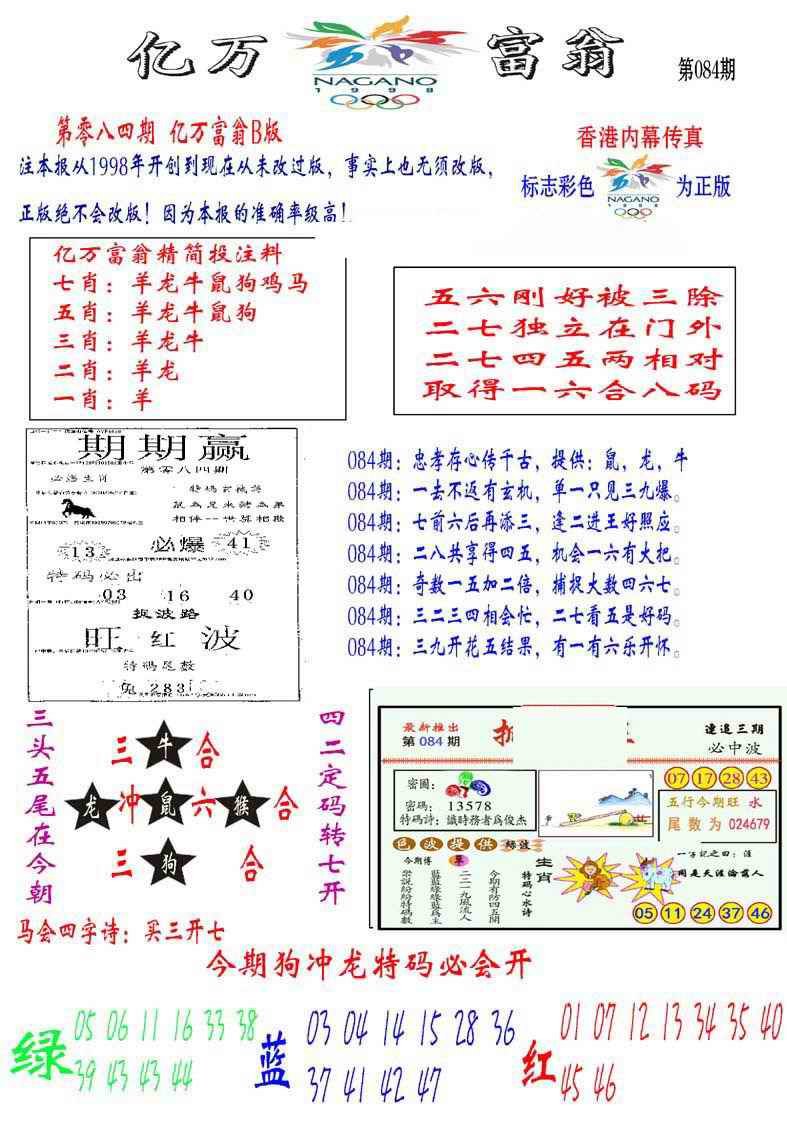 亿万
NAGANO
1998
富翁
第084期
第零八四期 亿万富翁B版
注本报从1998年开创到现在从未改过版，事实上也无须改版，
正版绝不会改版！因为本报的准确率级高！
香港内幕传真
标志彩色
NAGANO
1998
为正版
亿万富翁精简投注料
七肖：羊龙牛鼠狗鸡马
五肖：羊龙牛鼠狗
三肖：羊龙牛
二肖：羊龙
一肖：羊
五六刚好被三除
二七独立在门外
二七四五两相对
取得一六合八码
期期赢
第零八四期
必爆
13
41
特码必出
03 16 40
捉波路
旺红波
特碼尾数
兔283
084期：忠孝存心传千古，提供：鼠，龙，牛
084期：一去不返有玄机，单一只见三九爆。
084期：七前六后再添三，逢二进王好照应。
084期：二八共享得四五，机会一六有大把。
084期：奇数一五加二倍，捕捉大数四六七。
084期：三二三四相会忙，二七看五是好码。
084期：三九开花五结果，有一有六乐开怀。
三头五尾在今朝
三 牛 合
龙 冲 鼠 六 猴 合
三 狗 合
四二定码转七开
最新推出
第 084 期
連追三期
必中波
07 17 28 43
密圖：
密碼： 13578
特码詩：識時務者爲俊杰
五行今期旺 水
尾数为 024679
色波提供
綠波
今期博
單
二三一九風流人
今期有防四五開
特码心水诗
生肖
05 11 24 37 46
马会四字诗：买三开七
今期狗冲龙特码必会开
绿
05 06 11 16 33 38
39 43 43 44
蓝
03 04 14 15 28 36
37 41 42 47
红
01 07 12 13 34 35 40
45 46